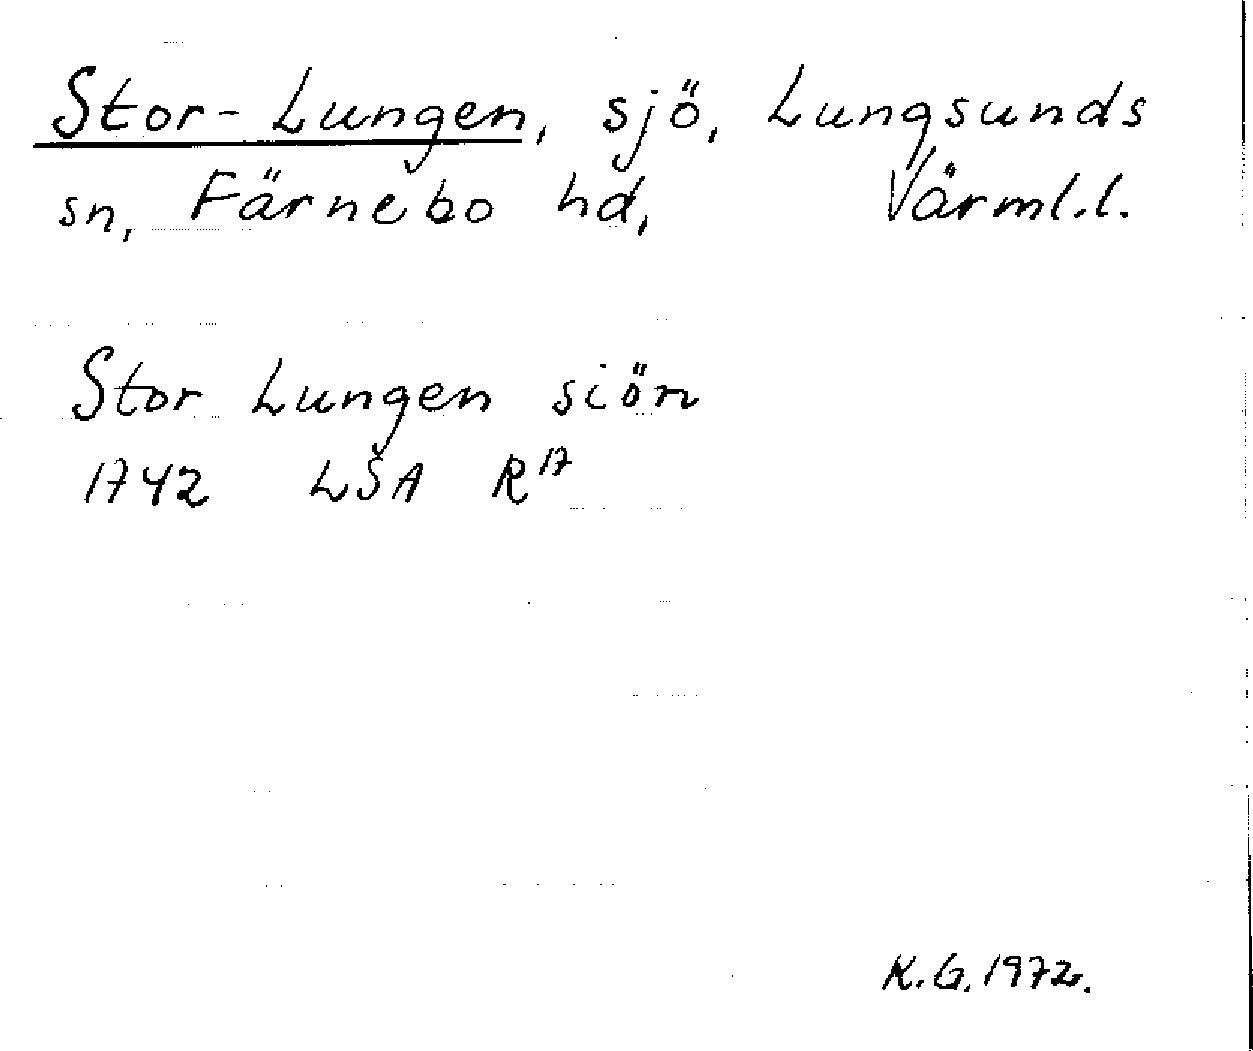 Stor-Lungen, sjö, Lungsunds
sn, Färnebo hd, Värml.l.
Stor Lungen siön
1742 LSA R17
K.G. 1972.